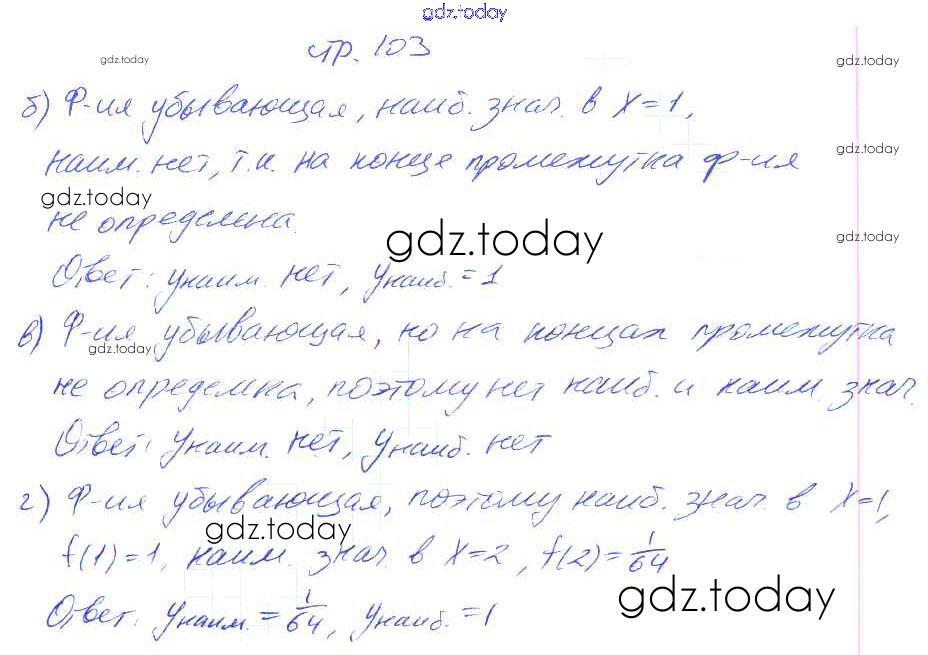 gdz.today
стр. 103
gdz.today
gdz.today
б) Ф-ия убывающая, наиб. знач. в x=1,
наим. нет, т.к. на конце промежутка ф-ия
gdz.today
gdz.today
не определена.
gdz.today
gdz.today
Ответ: yнаим. нет, yнаиб. = 1
в) Ф-ия убывающая, но на концах промежутка
gdz.today
не определена, поэтому нет наиб. и наим. знач.
Ответ: yнаим. нет, yнаиб. нет
г) Ф-ия убывающая, поэтому наиб. знач. в x=1,
gdz.today
f(1)=1, наим. знач. в x=2, f(2)=1/64
gdz.today
Ответ: yнаим. = 1/64, yнаиб. = 1